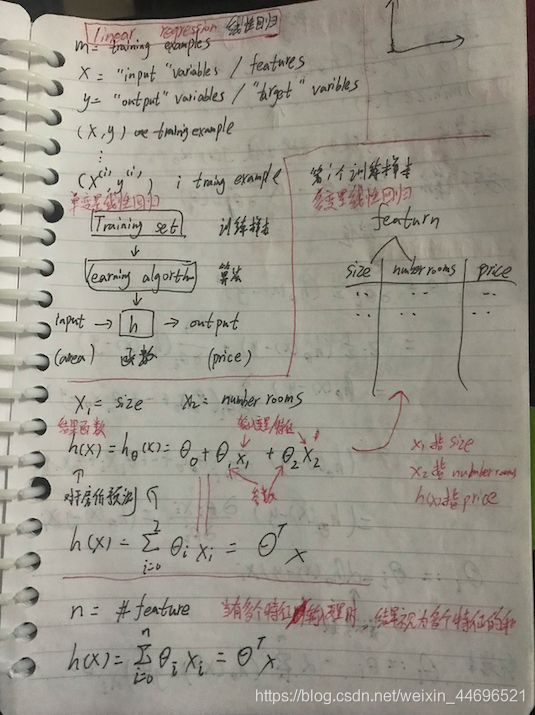 linear regression 线性回归
m = training examples
X = "input" variables / features
y = "output" variables / "target" varibles
(X, y) one traing example
⋮
(X^(i), y^(i)) i traing example 第i个训练样本
单变量线性回归
Training set 训练样本
learning algorthm 算法
input → h → output
(area) 函数 (price)
多变量线性回归
featurn
size | nuber rooms | price
X₁ = size X₂ = number rooms
结果函数
输入变量(特征)
h(X) = h_θ(X) = θ₀ + θ₁X₁ + θ₂X₂
对于房价预测
参数
x₁指 size
x₂指 number rooms
h(x)指 price
h(X) = ∑_{i=0}^{2} θᵢ xᵢ = θ^T x
n = #feature 当有多个特征 时,结果视为多个特征的和
h(X) = ∑_{i=0}^{n} θᵢ Xᵢ = θ^T X
https://blog.csdn.net/weixin_44696521